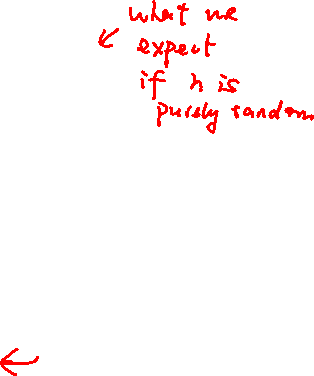 what we
expect
if h is
purely random